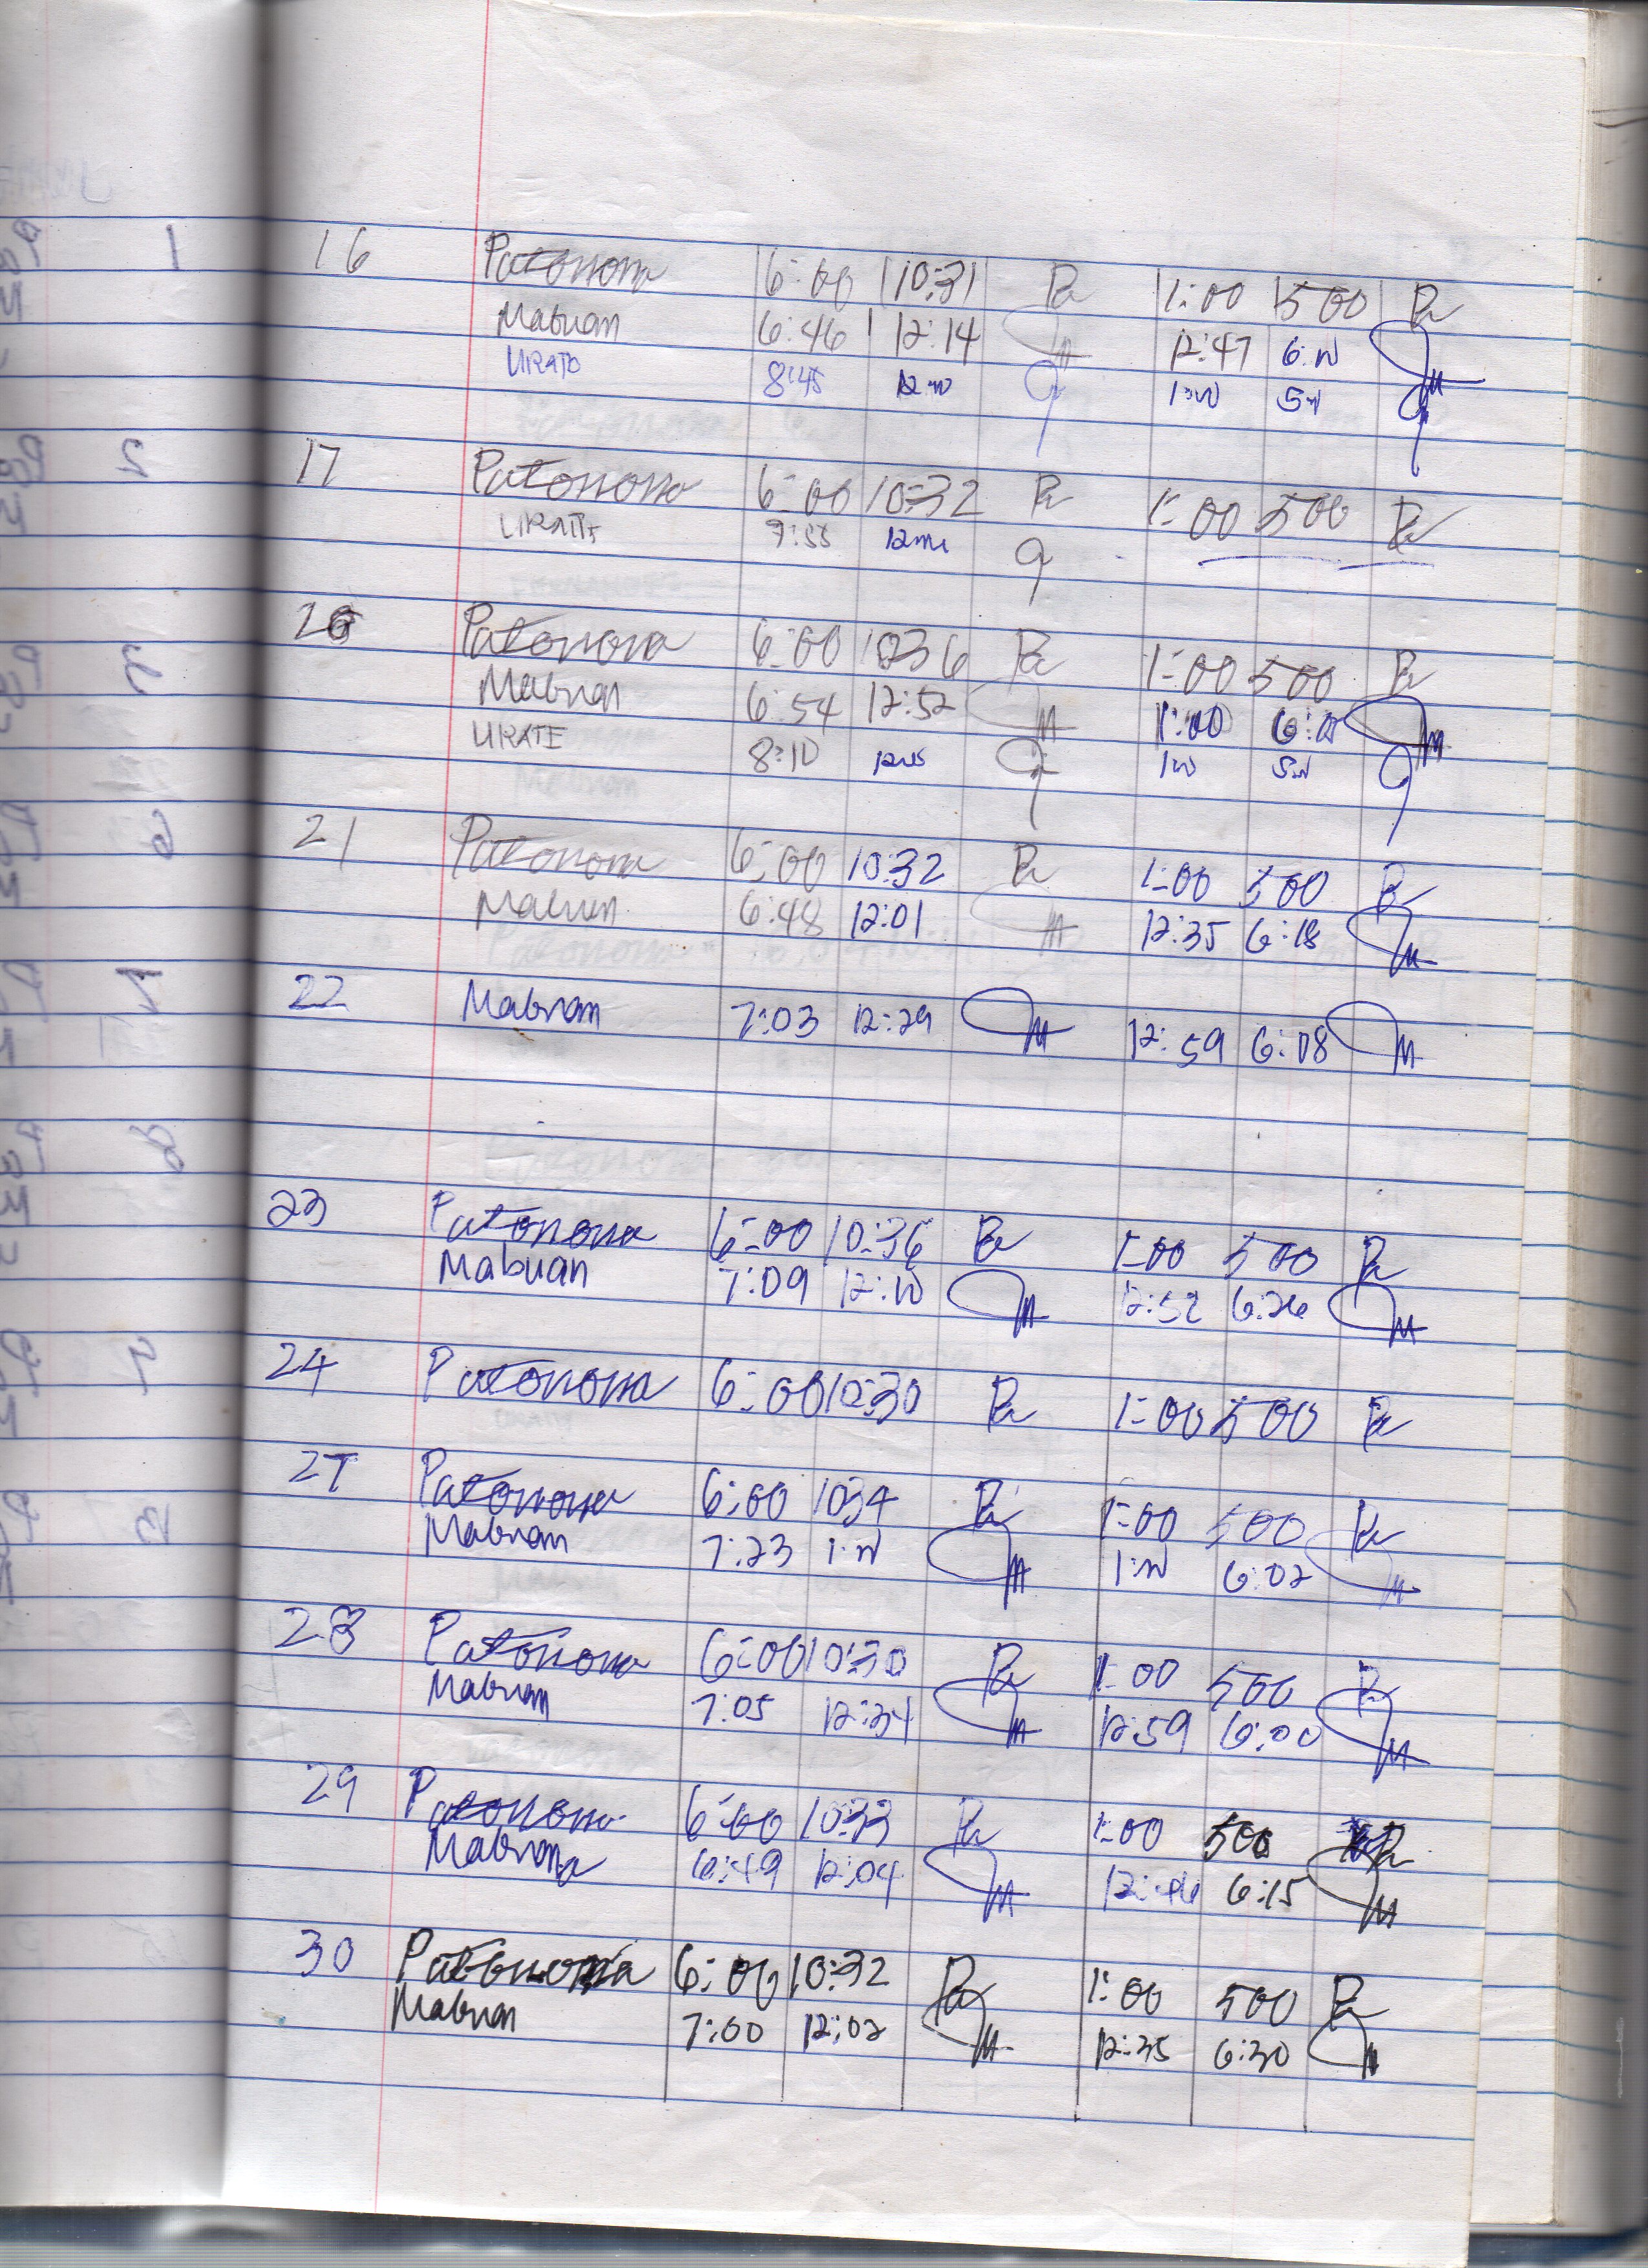 16 Patonona 6:00 10:31 Pa 1:00 500 Pa
Mabuan 6:46 12:14 M 12:47 6:00 M
URATE 8:45 12:00 1:00 5:00
17 Patonona 6:00 10:32 Pa 1:00 500 Pa
URATE 7:55 12
20 Patonona 6:00 1036 Pa 1:00 500 Pa
Mabuan 6:54 12:52 M 1:00 M
URATE 8:10 1:00 5:00
21 Patonona 6:00 10:32 Pa 1:00 500 Pa
Mabuan 6:48 12:01 M 12:35 6:18 M
22 Mabuan 7:03 12:29 M 12:59 6:08 M
23 Patonona 6:00 10:36 Pa 1:00 500 Pa
Mabuan 7:09 12:10 M 12:52 6:26 M
24 Patonona 6:00 10:30 Pa 1:00 500 Pa
27 Patonona 6:00 1034 Pa 1:00 500 Pa
Mabuan 7:23 1:00 M 1:00 6:02 M
28 Patonona 6:00 10:30 Pa 1:00 500 Pa
Mabuan 7:05 12:34 M 12:59 6:00 M
29 Patonona 6:00 10:33 Pa 1:00 500 Pa
Mabuan 6:49 12:04 M 12:46 6:15 M
30 Patonona 6:00 10:32 Pa 1:00 500 Pa
Mabuan 7:00 12:02 M 12:35 6:30 M